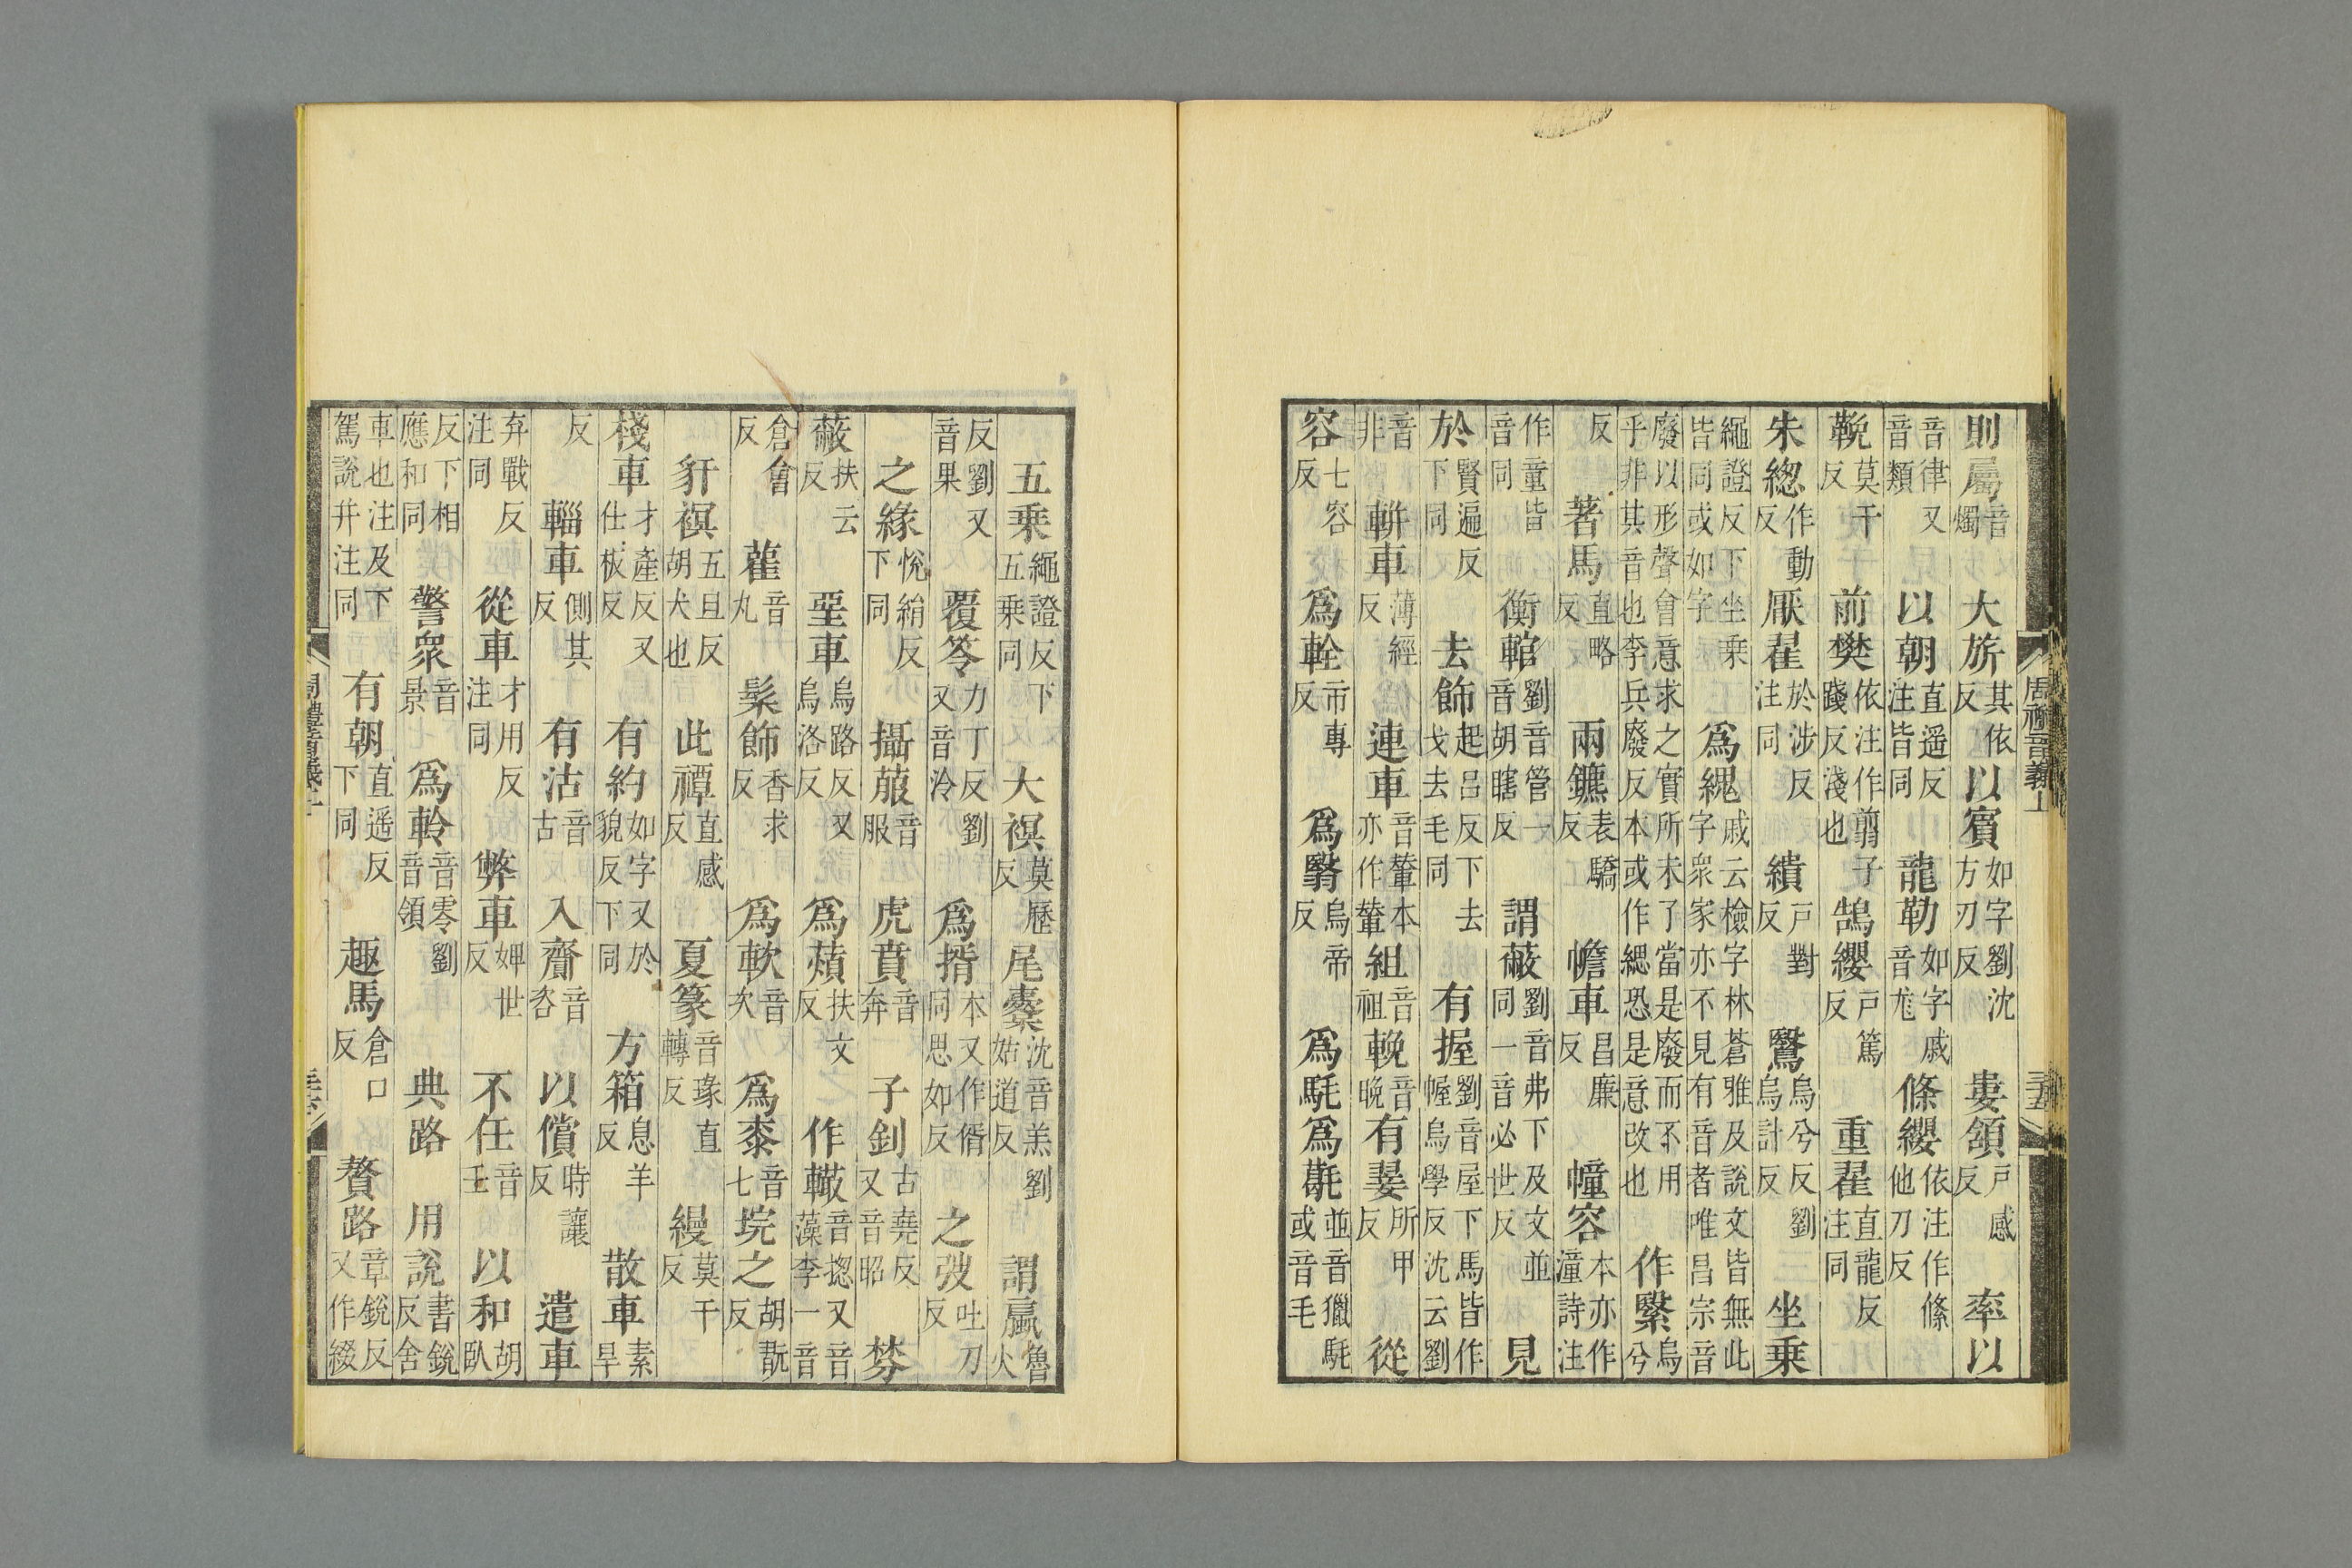 則屬音燭 大旂其依反 以賓如字劉沈方刃反 婁頷戶感反 率以
音律又音類 以朝直遥反注皆同 龍勒如字戚音尨 條纓依注作絛他刀反
鞔莫干反 前樊依注作翦子踐反淺也 鵠纓戶篤反 重翟直龍反注同
朱緫作動反 厭翟於涉反注同 繢戶對反 鷖烏兮反劉烏計反 坐乗
繩證反下坐乗皆同或如字 爲緄戚云檢字林蒼雅及說文皆無此字衆家亦不見有音者唯昌宗音
廢以形聲會意求之實所未了當是廢而不用乎非其音也李兵廢反本或作緦恐是意改也 作緊烏兮
反 著馬直略反 兩鑣表驕反 幨車昌廉反 幢容本亦作潼詩注作
作童皆音同 衡輨劉音管一音胡瞎反 謂蔽劉音弗下及文並同一音必世反 見
於賢遍反下同 去飾起呂反下去戈去毛同 有握劉音屋下馬皆作幄烏學反沈云劉
音非 輧車薄經反 連車音輦本亦作輦 組音祖 輓音晚 有翣所甲反 從
容七容反 爲輇市專反 爲繄烏帝反 爲毦爲氎並音獵毦或音毛
五乗繩證反下五乗同 大䄙莫歷反 尾櫜沈音羔劉姑道反 謂贏魯火
反劉又音果 覆笭力丁反劉又音泠 爲揟本又作偦同思如反 之弢吐刀反
之緣悅絹反下同 攝菔音服 虎賁音奔 子釗古堯反又音昭 棼
蔽扶云反 堊車烏路反又烏洛反 爲薠扶文反 作轍音揔又音藻李一音
倉會反 雚音丸 髤飾香求反 爲軟音次 爲桼音七 垸之胡翫反
豻䄙五旦反胡犬也 此禫直感反 夏篆音瑑直轉反 縵莫干反
棧車才產反又仕板反 有約如字又於貌反下同 方箱息羊反 散車素旱
反 輜車側其反 有沽音古 入齎音咨 以償時讓反 遣車
弃戰反注同 從車才用反注同 弊車婢世反 不任音壬 以和胡臥
反下相應和同 警衆音景 爲軨音零劉音領 典路 用說書銳反舍
車也注及下駕說幷注同 有朝直遥反下同 趣馬倉口反 贅路章銳反又作綴
周禮音義上
三十五